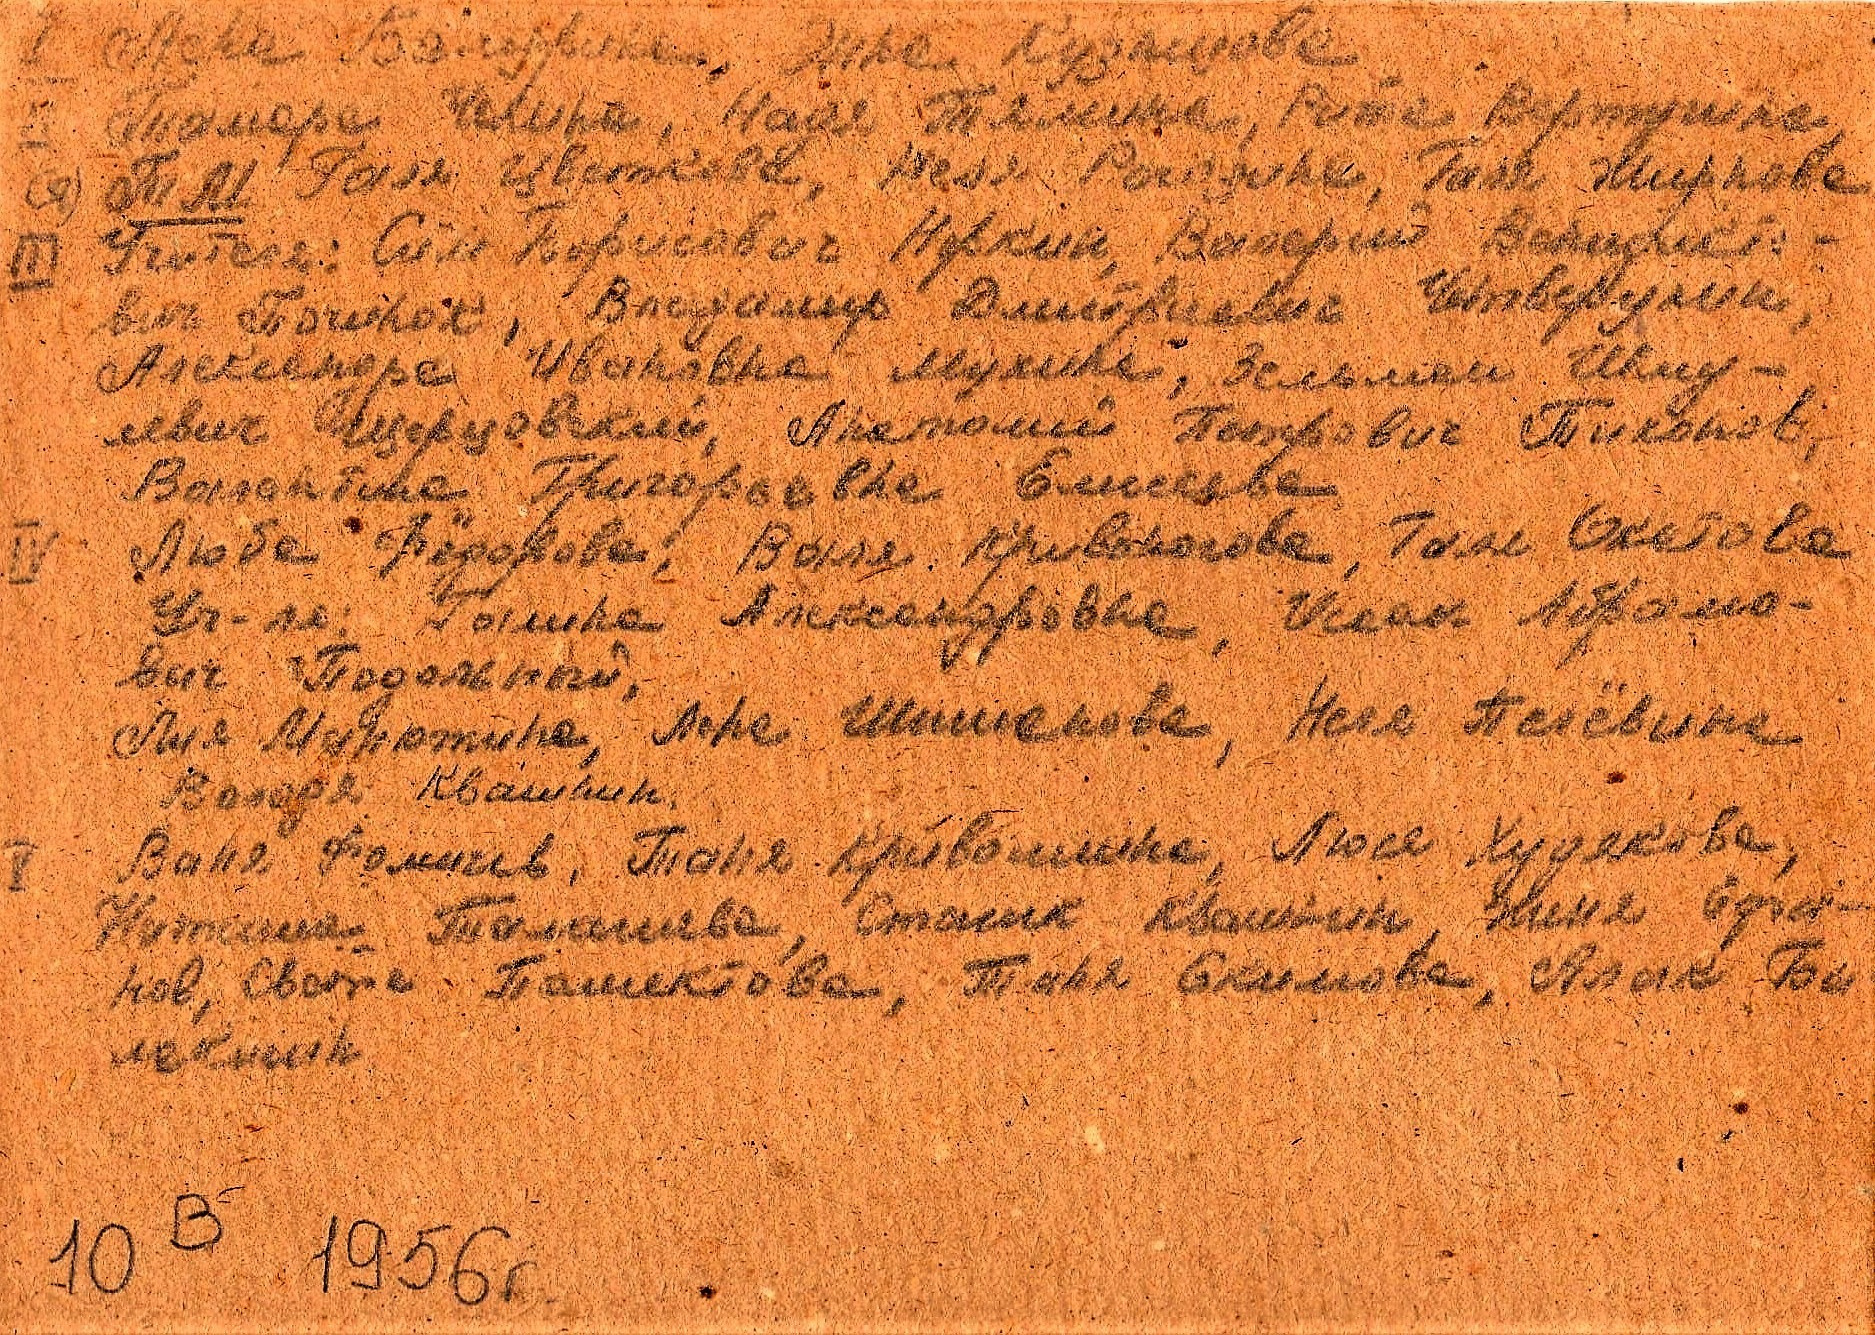 I Лена Болдрина, Инна Кузнецова
II Тамара Чалина, Надя Тялина, Рита Вертушина,
(Я) ТЯМ Галя Цветкова, Неля Рогозина, Галя Жиркова
III Учителя: Сим Борисович Норкин, Валерий Венедикто-
вич Починок, Владимир Дмитриевич Четверухин,
Александра Ивановна Мухина, Зельман Шму-
левич Щерцовский, Анатолий Петрович Тихонов,
Валентина Григорьевна Елисеева
IV Люба Фёдорова, Валя Кривоногова, Галя Охотова
Уч-ля: Галина Александровна, Исаак Абрамо-
вич Подольный,
Лия Марютина, Аня Шишанова, Неля Пелёвина
Володя Квашнин.
V Ваня Фомичев, Таня Кривошеина, Люся Худякова,
Наташа Талашева, Сталик Квашнин,
нов, Света Пашектова, Таня Екимова, Алик Би
лекшин
10 В 1956г.